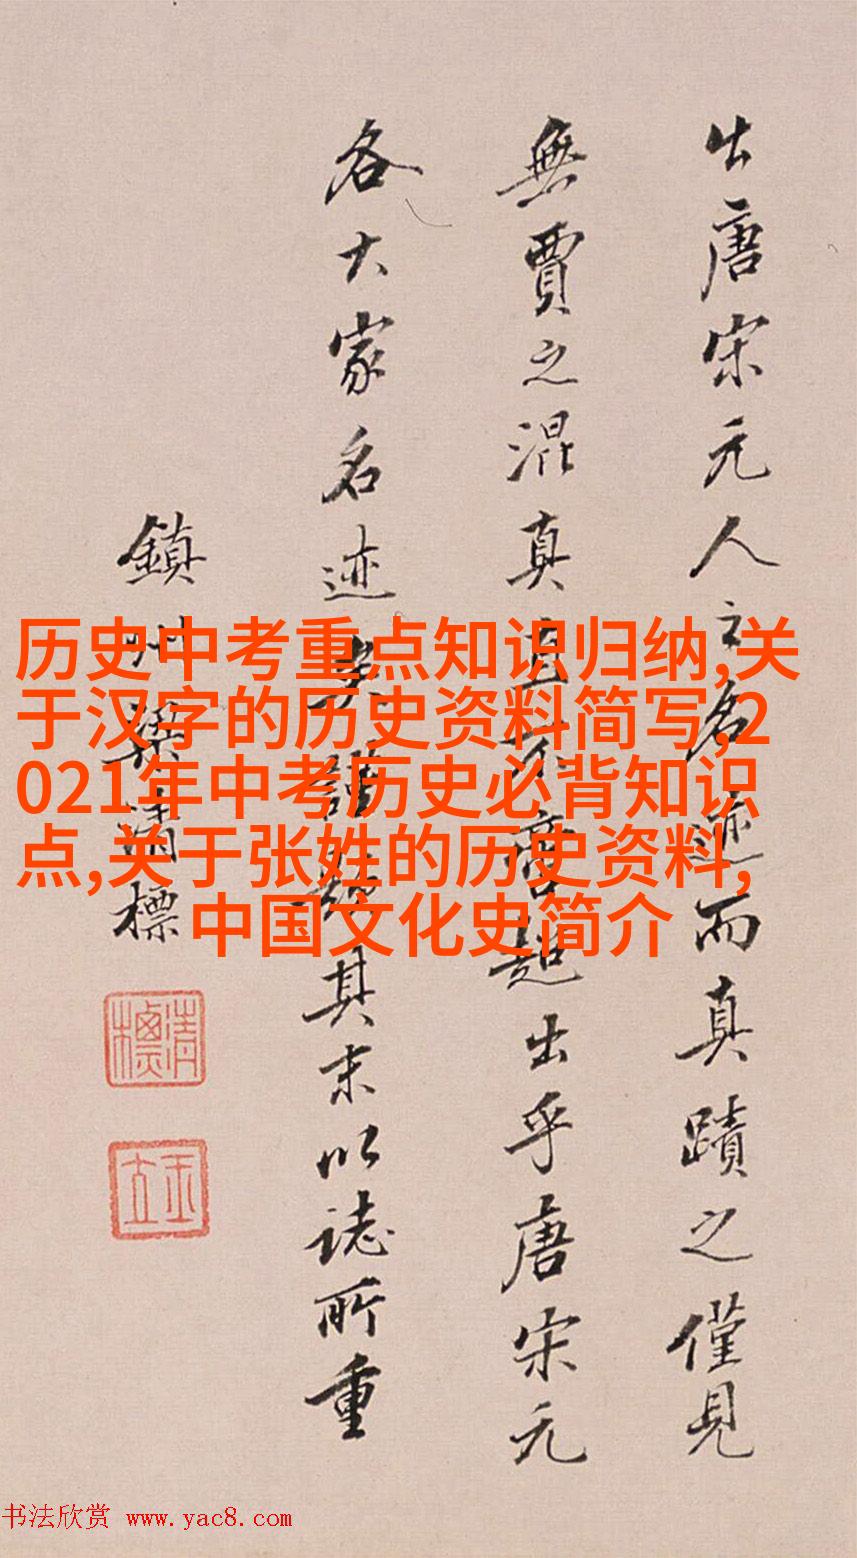 出唐宋元人之名迹而真蹟之僅見
無賈之混真直不啻超出乎唐宋元
各大家名迹矣謹其末以誌所重
鎮州梁清標
清標
玉立
历史中考重点知识归纳,关
于汉字的历史资料简写,2
021年中考历史必背知识
点,关于张姓的历史资料,
中国文化史简介
书法欣赏 www.yac8.com